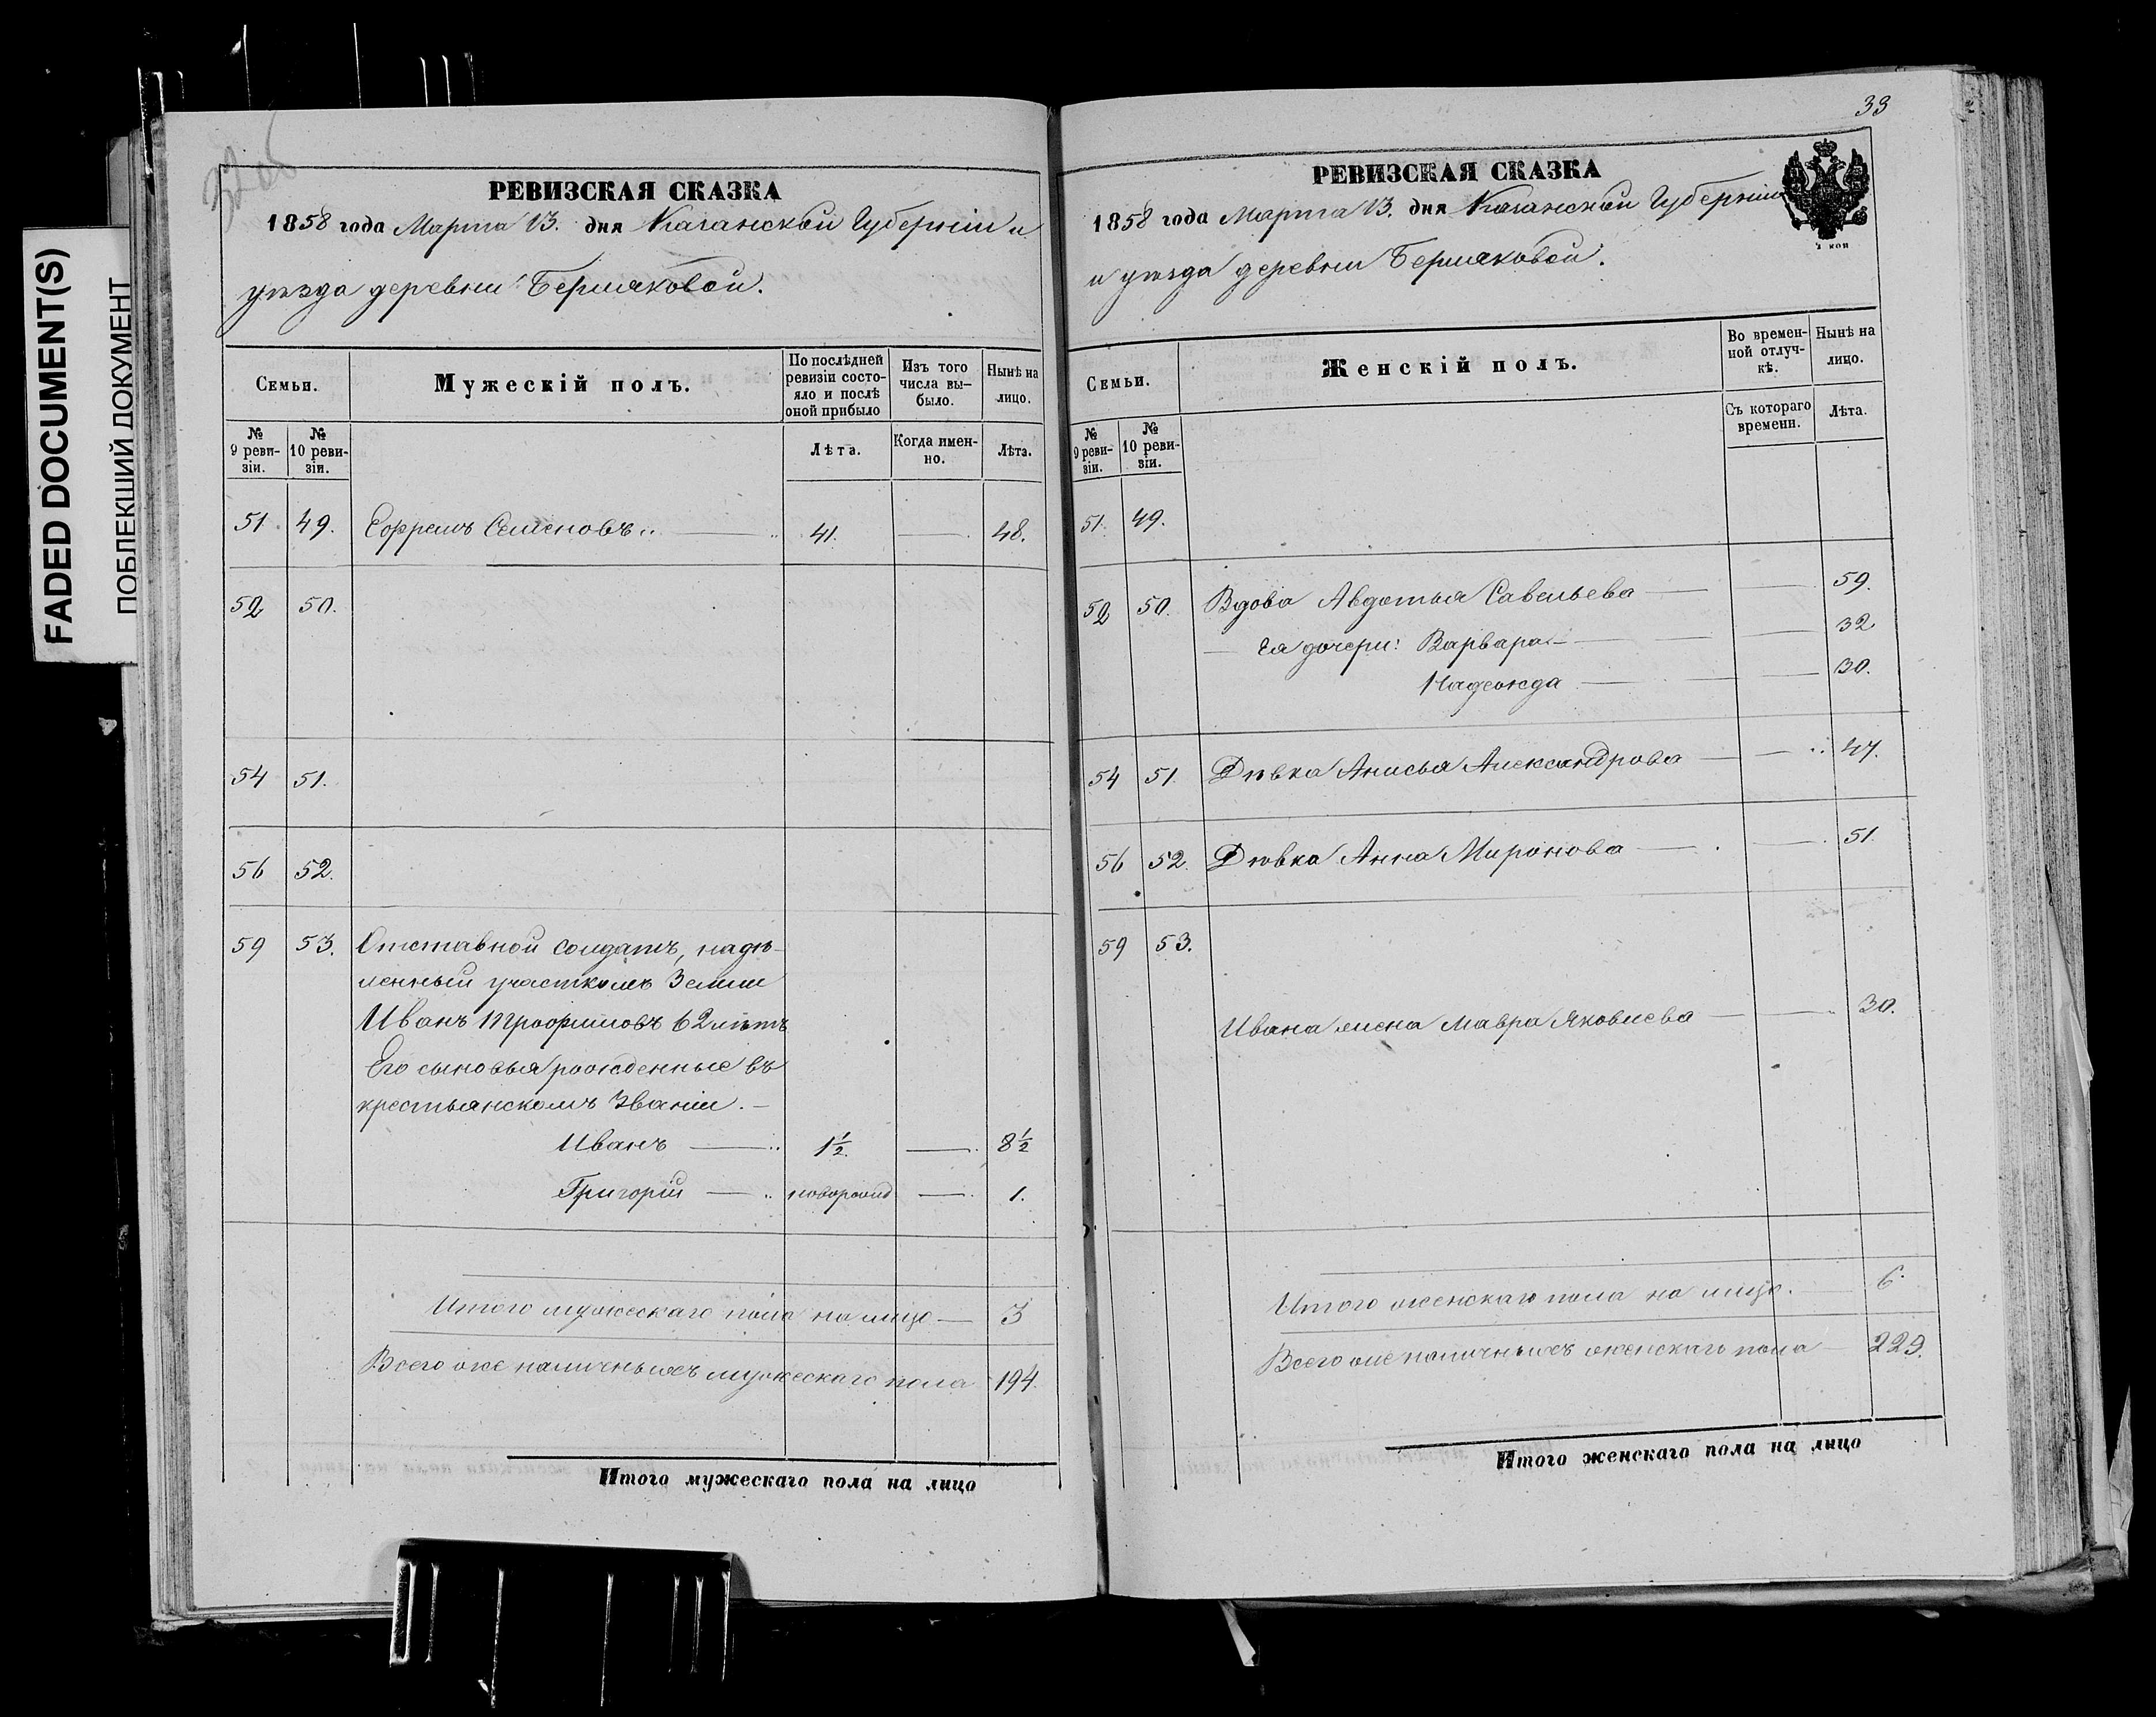 FADED DOCUMENT(S)
ПОБЛЕКШИЙ ДОКУМЕНТ
32 об
РЕВИЗСКАЯ СКАЗКА
1858 года Марта 13. дня Казанской Губернiи и
уѣзда деревни Бермяковой.
Семьи.
Мужескiй полъ.
По послѣдней
ревизiи состо-
яло и послѣ
оной прибыло
Изъ того
числа вы-
было.
Нынѣ на
лицо.
№
9 реви-
зiи.
№
10 реви-
зiи.
Лѣта.
Когда имен-
но.
Лѣта.
51. 49. Ефремъ Семеновъ 41. 48.
52 50.
54 51.
56 52.
59 53. Отставной солдатъ, надѣ-
ленный участкомъ Земли
Иванъ Трофимовъ 62 лѣтъ
Его сыновья рожденные въ
крестьянскомъ Званiи. —
Иванъ 1½. 8½
Григорiй новорожд 1.
Итого мужескаго пола на лицо — 3
Всего же наличныхъ мужескаго пола 194.
Итого мужескаго пола на лицо
33
РЕВИЗСКАЯ СКАЗКА
1858 года Марта 13. дня Казанской Губернiи
и уѣзда деревни Бермяковой.
Семьи.
Женскiй полъ.
Во времен-
ной отлуч-
кѣ.
Нынѣ на
лицо.
№
9 реви-
зiи.
№
10 реви-
зiи.
Съ котораго
времени.
Лѣта.
51. 49.
52 50. Вдова Авдотья Савельева 59.
Ея дочери: Варвара 32.
Надежда 30.
54 51. Дѣвка Анисья Александрова 47.
56 52. Дѣвка Анна Миронова 51.
59 53.
Ивана жена Мавра Яковлева 30.
Итого женскаго пола на лицо. 6.
Всего же наличныхъ женскаго пола 229.
Итого женскаго пола на лицо